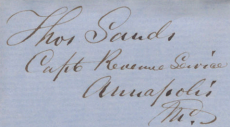 Thos Sands
Capt Revenue Service
Annapolis
Md.